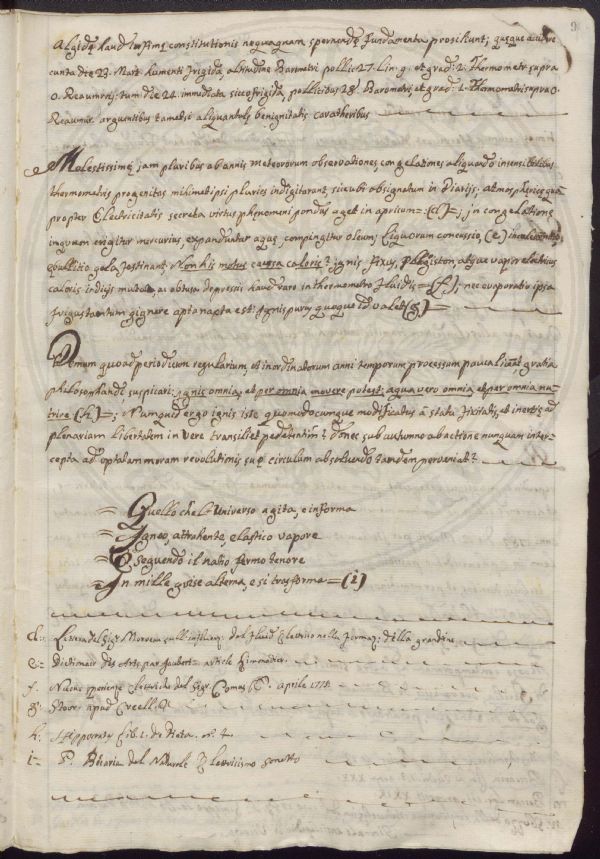 9
Algidæ haud infimæ constitutionis nequaquam spernendæ fundamenta prosiliunt; quæque
cunta die 23. Mart. humenti frigida, altitudine Barometri pollic. 27. Lin. 9. et grad: 2. Thermometr. supra
0. Reaumrij: tum die 24. immediata sicco frigida, pollicibus 28. Barometri, et grad. 1. Thermometri supra 0.
Reaumur. arguentibus tametsi aliquantulæ benignitatis
Molestissimæ jam pluribus ab annis meteororum observationes, congelationes aliquando insensibilibus
thermometris progenitas mihimetipsi pluries indigitarunt, sicubi obsignatum in Diarijs; atmosphericæ qua
propter Electricitatis secreta virtus phenomeni pondus aget in apricum = (d) =; in congelatione
inquem erigitur mercurius, expanduntur aquæ, compingitur oleum; Liquorum concussio, (e)
ebullitio gela festinant. Non his motus causa caloris? ignis fixus, Phlogiston, atque vapor electricus
caloris indicijs muta, ac obtusa depressis haud raro in thermometro fluidis = (f); nec evaporatio ipsa
frigus tantum gignere apta nata est: Ignis purus quoque id valet (g) =
Demum quoad periodicum regularium, et inordinatorum anni temporum processum pauca liceat gratia
philosophandi suspicari: ignis omnia, et per omnia movere potest; aqua vero omnia, et per omnia nu-
trire (h) =; Numquid ergo ignis iste quomodocumque modificatus a stata frigitatis, et inertiæ ad
plenariam libertatem in Vere transiliet pedetentim? donec sub autumno ab actione nunquam inter-
cepta ad optatam moram revolutionis suæ circulum absolvendo tandem perveniat?
= Quello che l'Universo agita, e informa
= Igneo, attrahente, elastico vapore
= E seguendo il natio fermo tenore
= In mille guise alterna, e si trasforma = (i)
d: Lettera del Sigr. Moroem sull'influenz: del fluid. Elettrico nella formaz: della grandine
e: Dictionair des Arts, par Joubert: article
f. Nuove sperienze elettriche del Sigr. Comus aprile 1775.
g: apud Crell.
h. Hippocrates Lib. 1. de Dieta. n. 4.
i = P. Beccaria del Naturale Elettricismo sonetto